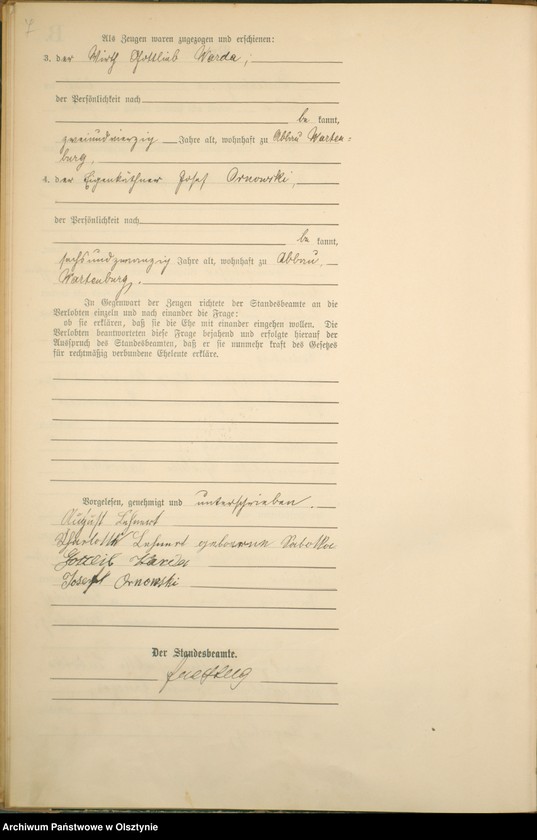 7
Als Zeugen waren zugezogen und erschienen:
3. der Wirth Gottlieb Warda,
der Persönlichkeit nach
be kannt,
zweiundvierzig Jahre alt, wohnhaft zu Abbau Warten=
burg.
4. der Eigenkäthner Josef Ornowski,
der Persönlichkeit nach
be kannt,
sechsundzwanzig Jahre alt, wohnhaft zu Abbau
Wartenburg.
In Gegenwart der Zeugen richtete der Standesbeamte an die
Verlobten einzeln und nach einander die Frage:
ob sie erklären, daß sie die Ehe mit einander eingehen wollen. Die
Verlobten beantworteten diese Frage bejahend und erfolgte hierauf der
Ausspruch des Standesbeamten, daß er sie nunmehr kraft des Gesetzes
für rechtmäßig verbundene Eheleute erkläre.
Vorgelesen, genehmigt und unterschrieben.
August Lehnert
Charlotte Lehnert geborene Sabotka
Gottlieb Warda
Josef Ornowski
Der Standesbeamte.
Archiwum Państwowe w Olsztynie